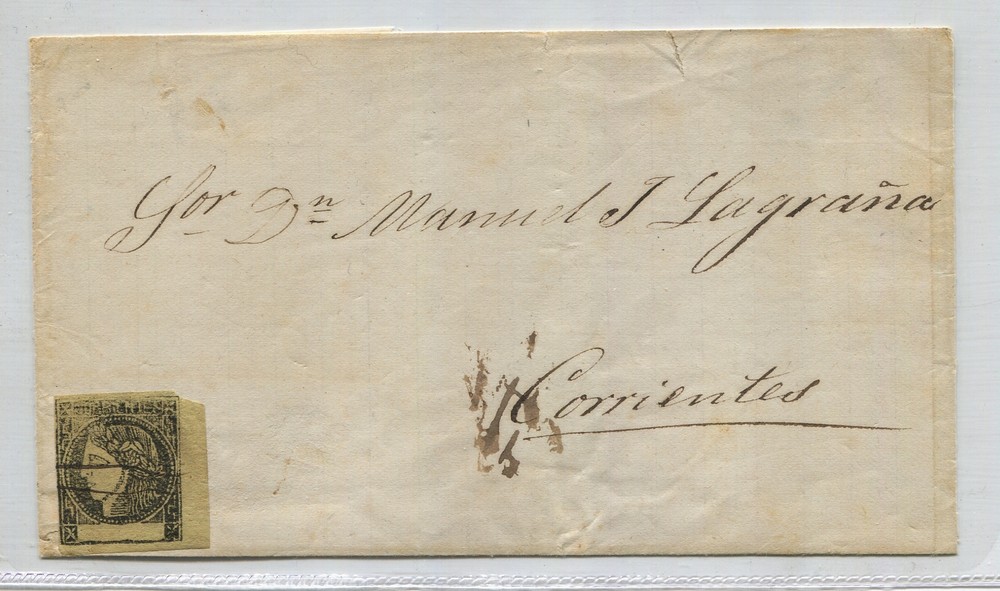 Sor Dn Manuel J Lagraña
Corrientes
CORRIENTES